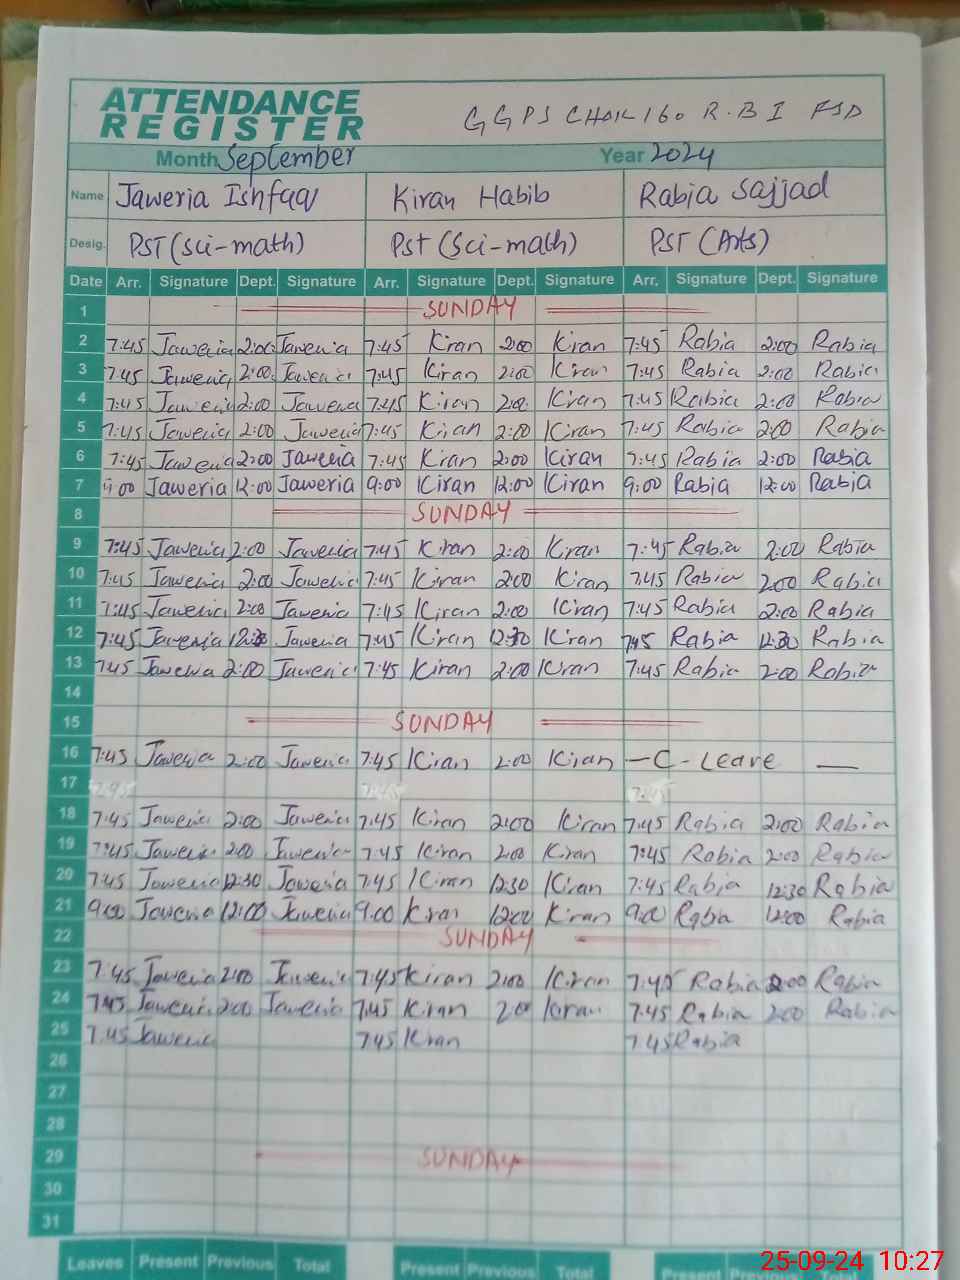 ATTENDANCE
REGISTER
GGPS CHAK 160 R.B I FSD
Month September Year 2024
Name Jaweria Ishfaq Kiran Habib Rabia Sajjad
Desig. PST (Sci-math) PST (Sci-math) PST (Arts)
Date Arr. Signature Dept. Signature Arr. Signature Dept. Signature Arr. Signature Dept. Signature
1 SUNDAY
2 7:45 Jaweria 2:00 Jaweria 7:45 Kiran 2:00 Kiran 7:45 Rabia 2:00 Rabia
3 7:45 Jaweria 2:00 Jaweria 7:45 Kiran 2:00 Kiran 7:45 Rabia 2:00 Rabia
4 7:45 Jaweria 2:00 Jaweria 7:45 Kiran 2:00 Kiran 7:45 Rabia 2:00 Rabia
5 7:45 Jaweria 2:00 Jaweria 7:45 Kiran 2:00 Kiran 7:45 Rabia 2:00 Rabia
6 7:45 Jaweria 2:00 Jaweria 7:45 Kiran 2:00 Kiran 7:45 Rabia 2:00 Rabia
7 9:00 Jaweria 12:00 Jaweria 9:00 Kiran 12:00 Kiran 9:00 Rabia 12:00 Rabia
8 SUNDAY
9 7:45 Jaweria 2:00 Jaweria 7:45 Kiran 2:00 Kiran 7:45 Rabia 2:00 Rabia
10 7:45 Jaweria 2:00 Jaweria 7:45 Kiran 2:00 Kiran 7:45 Rabia 2:00 Rabia
11 7:45 Jaweria 2:00 Jaweria 7:45 Kiran 2:00 Kiran 7:45 Rabia 2:00 Rabia
12 7:45 Jaweria 12:30 Jaweria 7:45 Kiran 12:30 Kiran 7:45 Rabia 12:30 Rabia
13 7:45 Jaweria 2:00 Jaweria 7:45 Kiran 2:00 Kiran 7:45 Rabia 2:00 Rabia
14
15 SUNDAY
16 7:45 Jaweria 2:00 Jaweria 7:45 Kiran 2:00 Kiran — C - Leave —
17
18 7:45 Jaweria 2:00 Jaweria 7:45 Kiran 2:00 Kiran 7:45 Rabia 2:00 Rabia
19 7:45 Jaweria 2:00 Jaweria 7:45 Kiran 2:00 Kiran 7:45 Rabia 2:00 Rabia
20 7:45 Jaweria 12:30 Jaweria 7:45 Kiran 12:30 Kiran 7:45 Rabia 12:30 Rabia
21 9:00 Jaweria 12:00 Jaweria 9:00 Kiran 12:00 Kiran 9:00 Rabia 12:00 Rabia
22 SUNDAY
23 7:45 Jaweria 2:00 Jaweria 7:45 Kiran 2:00 Kiran 7:45 Rabia 2:00 Rabia
24 7:45 Jaweria 2:00 Jaweria 7:45 Kiran 2:00 Kiran 7:45 Rabia 2:00 Rabia
25 7:45 Jaweria 7:45 Kiran 7:45 Rabia
26
27
28
29 SUNDAY
30
31
Leaves Present Previous Total Present Previous Total Present Previous
25-09-24 10:27